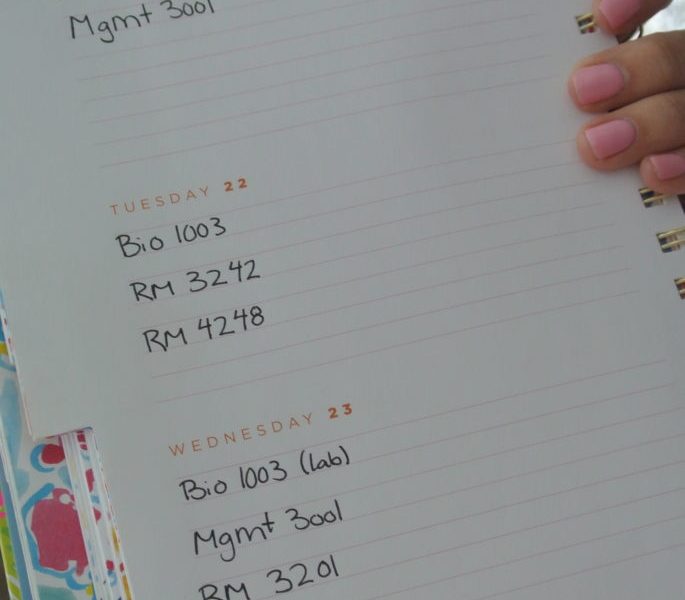 Mgmt 3001
TUESDAY 22
Bio 1003
RM 3242
RM 4248
WEDNESDAY 23
Bio 1003 (lab)
Mgmt 3001
RM 3201